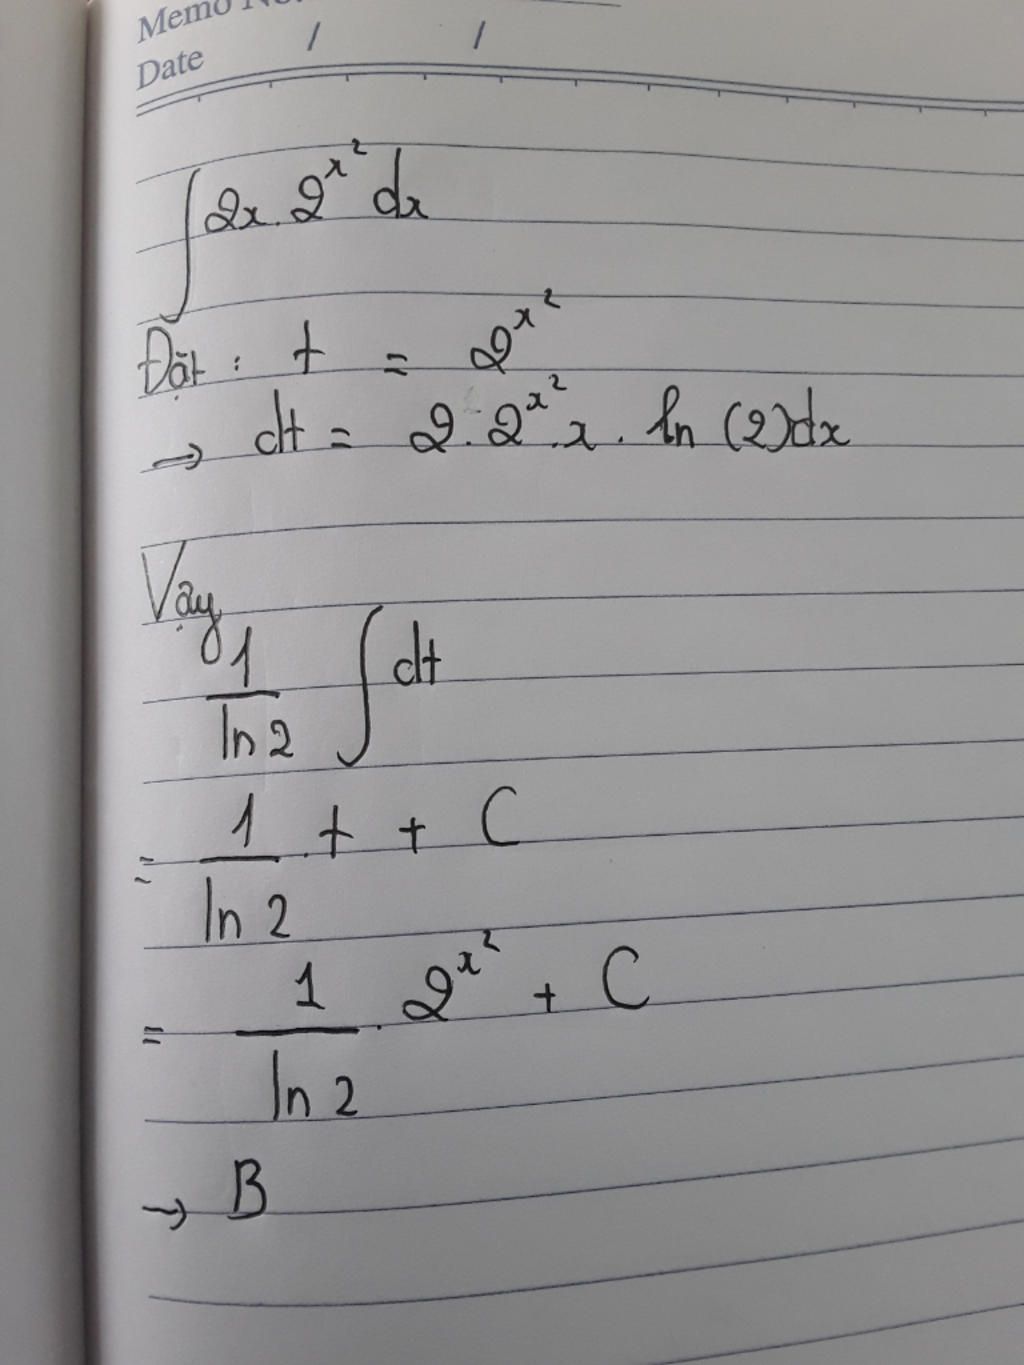 Memo No.
Date / /
∫ 2x . 2^{x^2} dx
Đặt : t = 2^{x^2}
→ dt = 2 . 2^{x^2} . x . ln (2)dx
Vậy
\frac{1}{ln 2} ∫ dt
= \frac{1}{ln 2} . t + C
= \frac{1}{ln 2} . 2^{x^2} + C
→ B